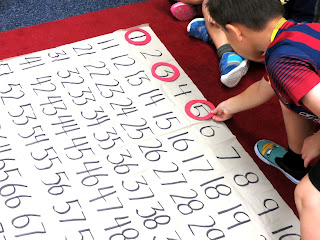 1 2 3 4 5 6 7 8 9
11 12 13 14 15 16 17 18 19 20
21 22 23 24 25 26 27 28 29
31 32 33 34 35 36 37 38
41 42 43 44 45 46 47 48
51 52 53 54 55 56 57
64 65 66 67